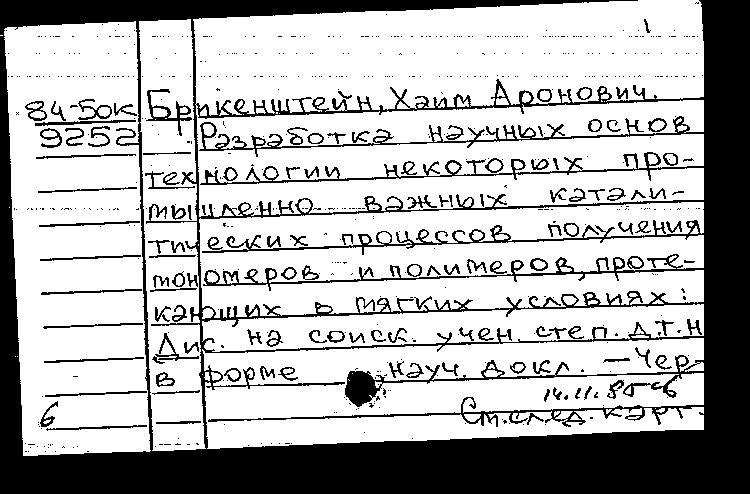 1
84-5ок Брикенштейн, Хаим Аронович.
9252 Разработка научных основ
технологии некоторых про-
мышленно важных катали-
тических процессов получения
мономеров и полимеров, проте-
кающих в мягких условиях:
Дис. на соиск. учен. степ. д.т.н
в форме науч. докл. — Чер-
14.11.85
6 См. след. карт.